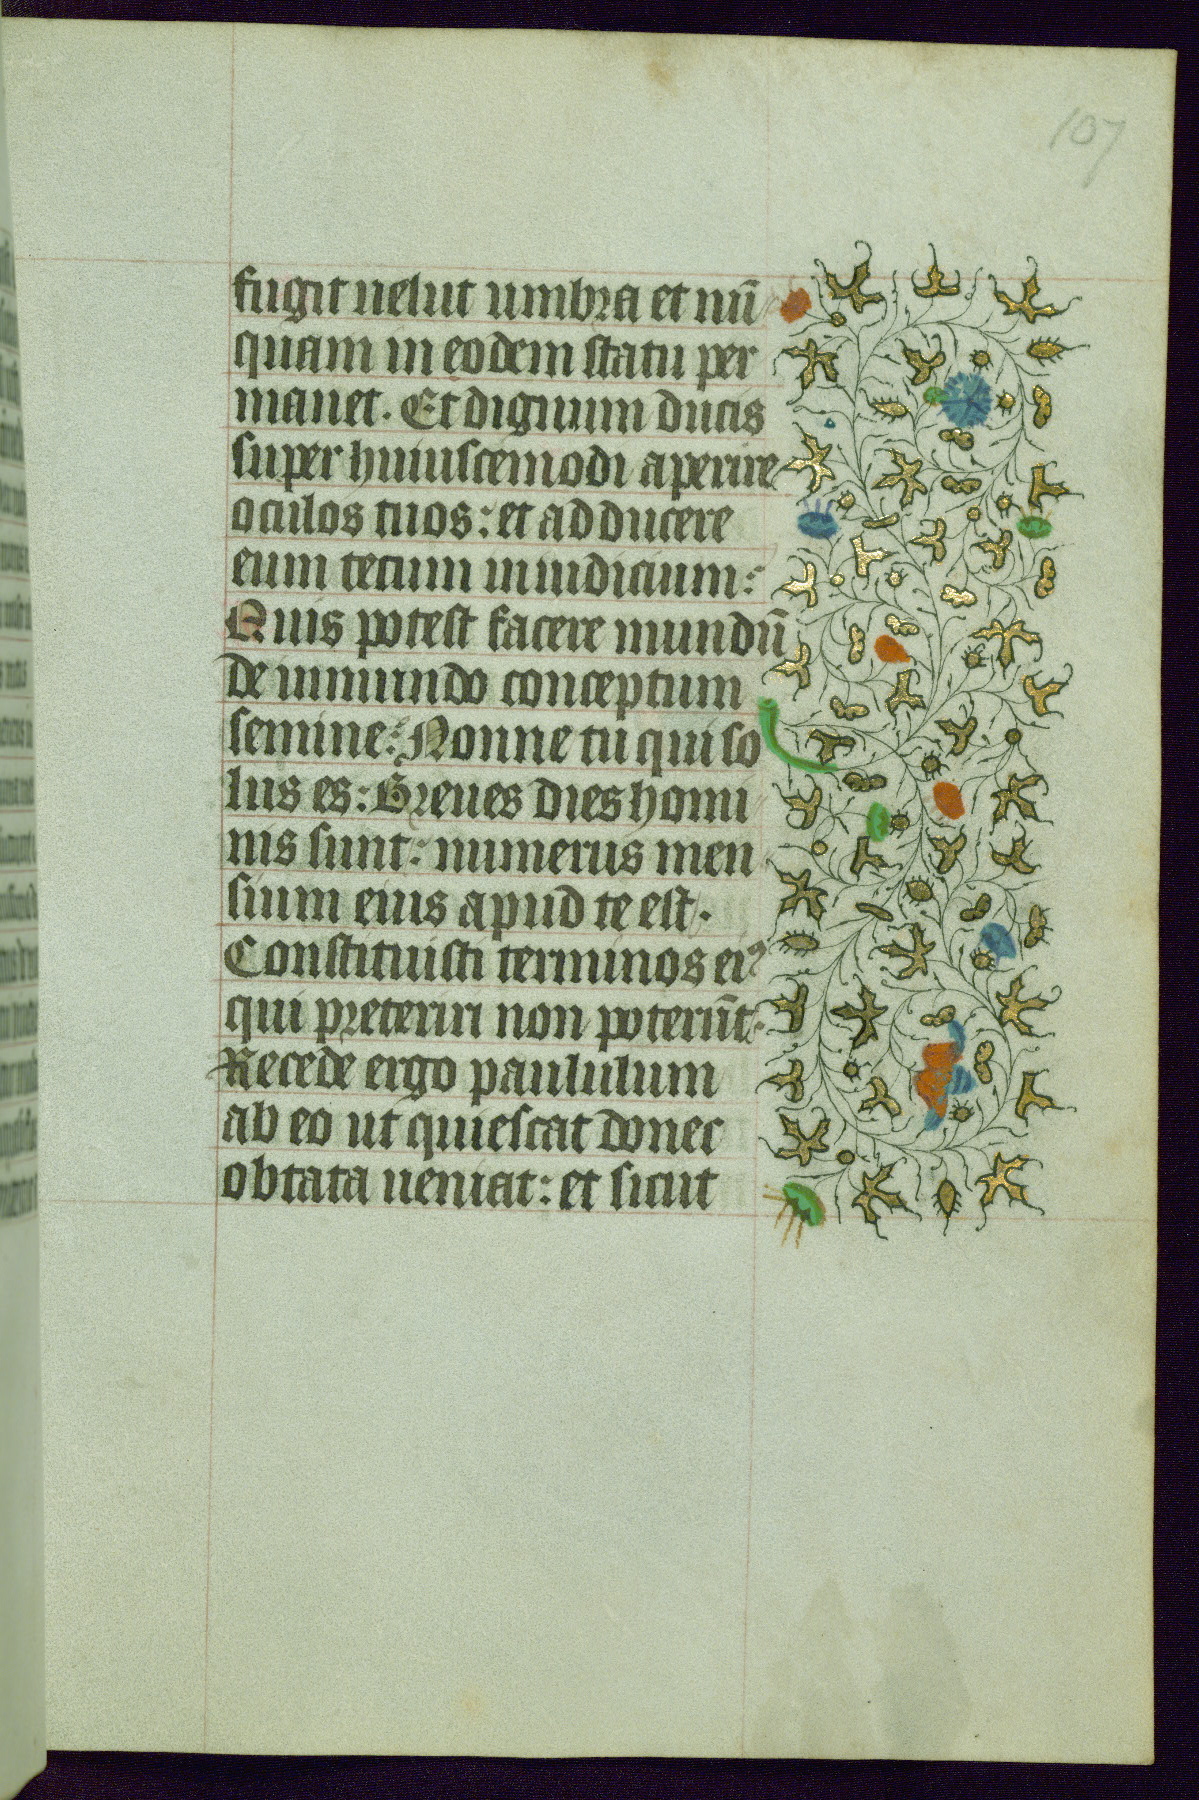 107
fugit uelut umbra et nū
quam in eodem statu per
manet. Et dignum ducis
super huiuscemodi aperire
oculos tuos: et adducere
eum tecum in iudicium:
Quis potest facere mundū
de inmundo conceptum
semine: Nonne tu qui so
lus es: Breues dies homi
nis sunt: numerus men
sium eius apud te est.
Constituisti terminos eiꝰ
qui preteriri non poterūt.
Recede ergo paululum
ab eo ut quiescat donec
obtata ueniat: et sicut